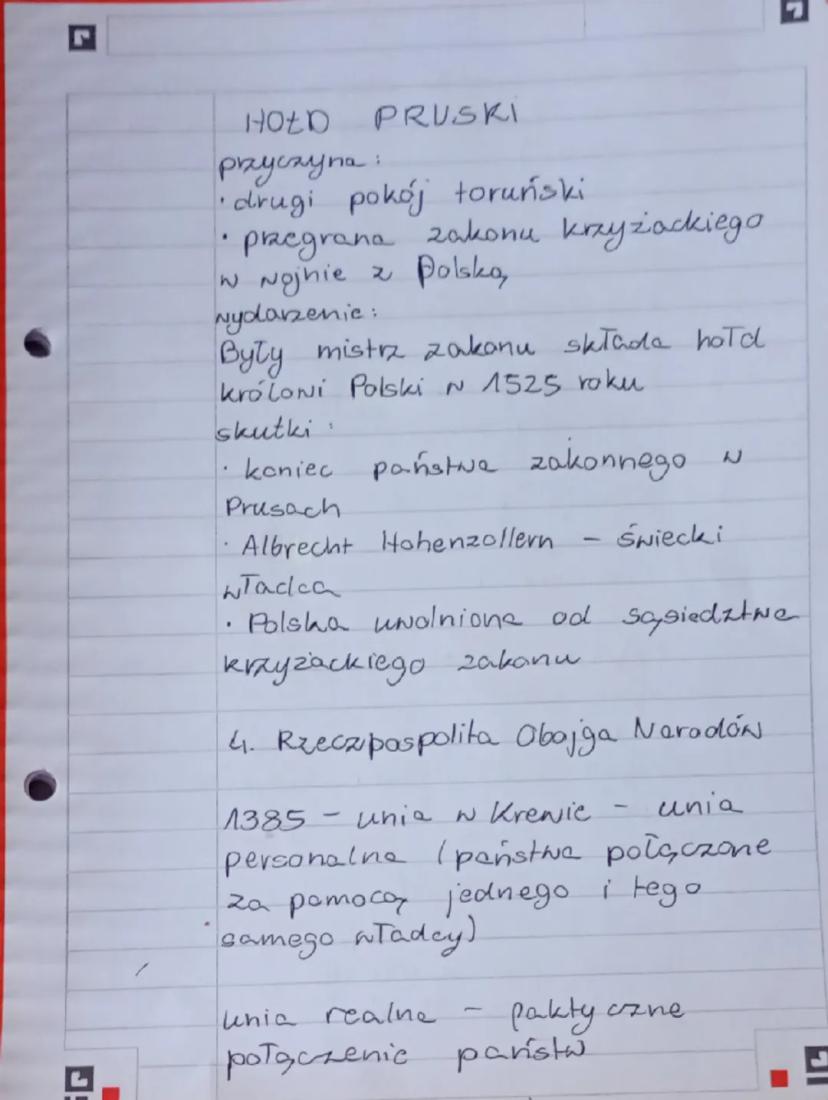 HOŁD PRUSKI
przyczyna:
· drugi pokój toruński
· przegrana zakonu krzyżackiego
w wojnie z Polską
wydarzenie:
Były mistrz zakonu składa hołd
królowi Polski w 1525 roku
skutki:
· koniec państwa zakonnego w
Prusach
· Albrecht Hohenzollern - świecki
władca
· Polska uwolniona od sąsiedztwa
krzyżackiego zakonu
4. Rzeczpospolita Obojga Narodów
1385 - unia w Krewie - unia
personalna (państwa połączone
za pomocą jednego i tego
samego władcy)
unia realna - faktyczne
połączenie państw